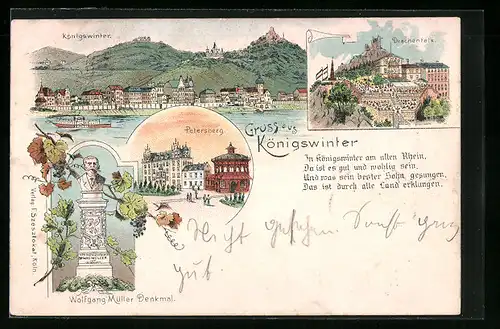 Königswinter.
Drachenfels.
Petersberg.
Gruss aus
Königswinter
In Königswinter am alten Rhein,
Da ist es gut und wohlig sein.
Und was sein bester Sohn gesungen,
Das ist durch alle Land erklungen.
Nicht gesehen. Sonst ganz
gut.
Wolfgang Müller Denkmal.
Verlag F. Szesztokat, Köln